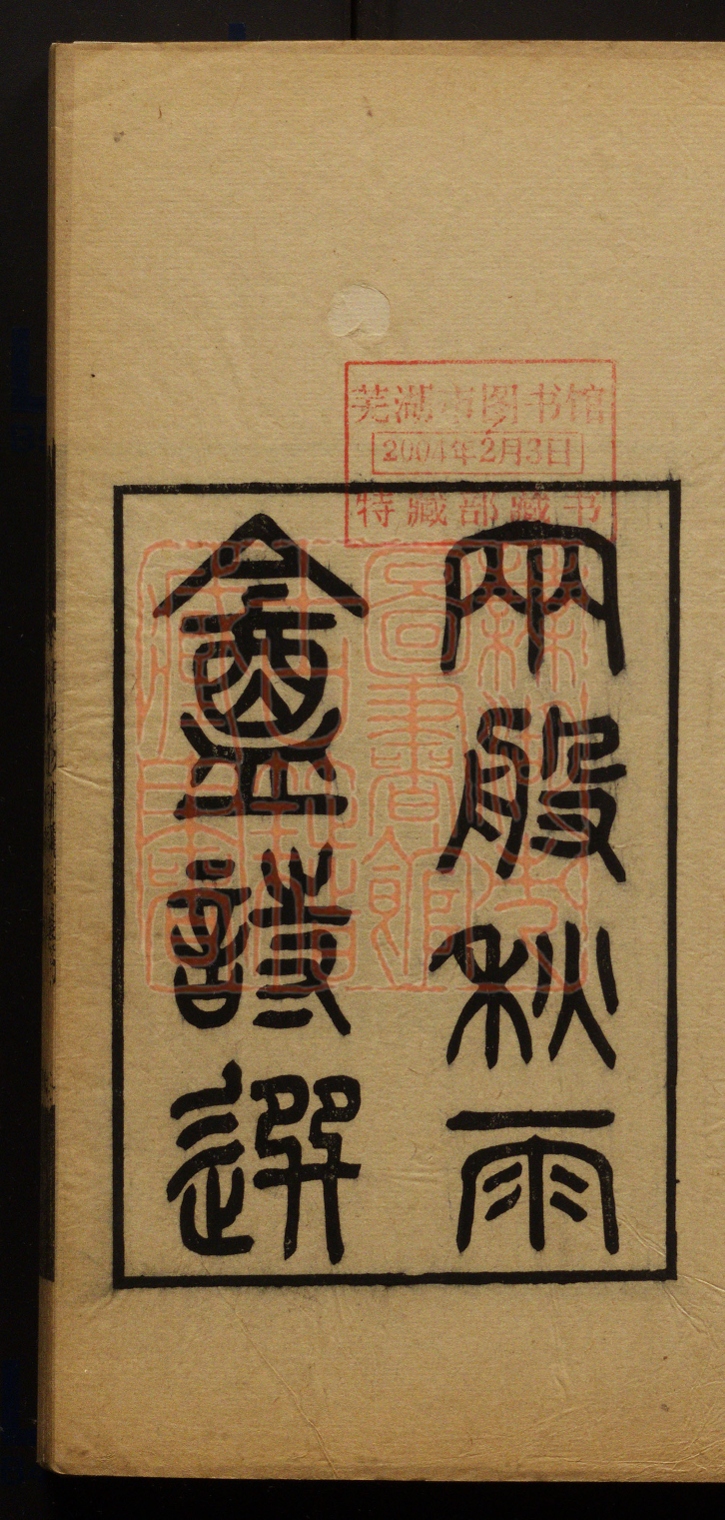 芜湖市图书馆
2004年2月3日
特藏部藏书
兩般秋雨
盦詩選